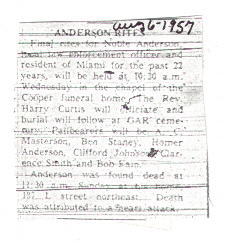 Aug 6-1957
ANDERSON RITES
Final rites for Noble Anderson,
law enforcement officer and
resident of Miami for the past 22
years, will be held at 10:30 a.m.
Wednesday in the chapel of the
Cooper funeral home. The Rev.
Harry Curtis will officiate and
burial will follow at GAR ceme-
tery. Pallbearers will be A. C.
Masterson, Ben Staney, Homer
Anderson, Clifford Johns, Clar-
ence Smith and Bob Fain.
Anderson was found dead at
11:30 a.m. Sunday at
L street northeast. Death
was attributed to a heart attack.